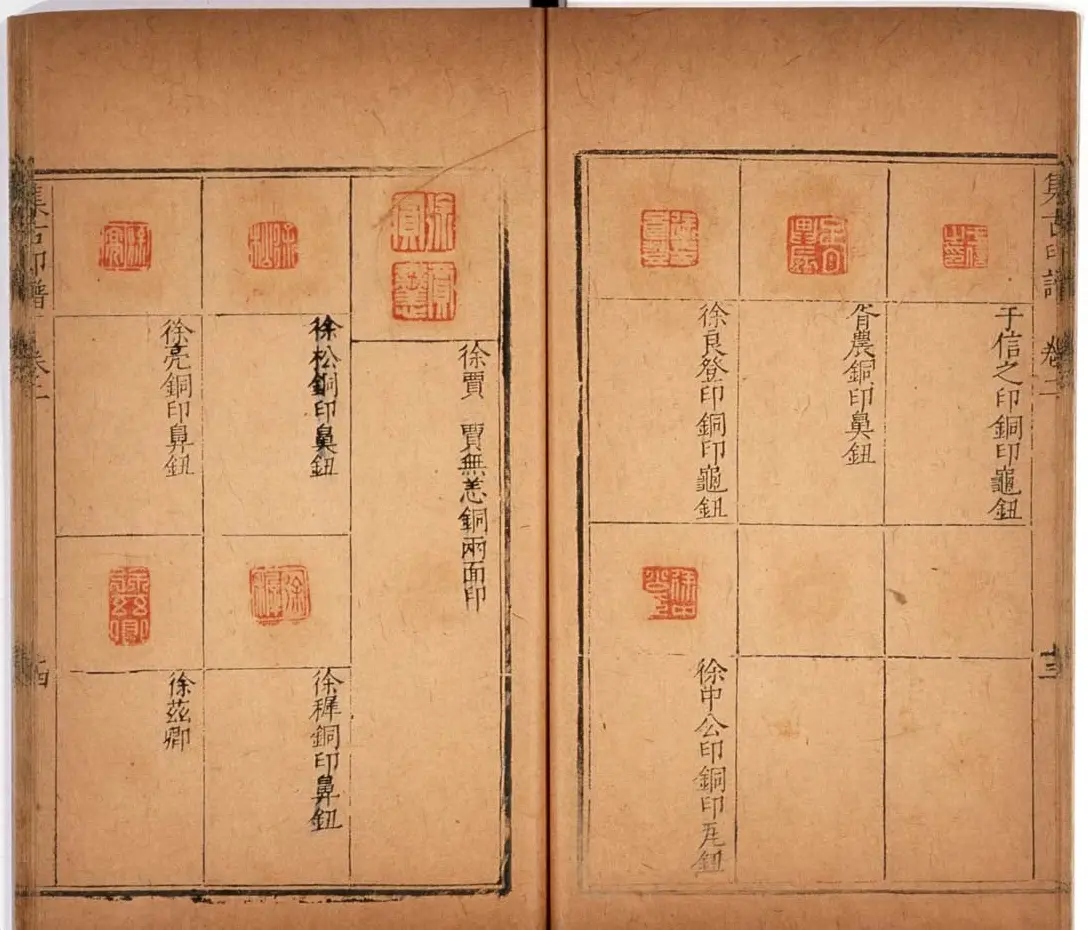 集古印譜 卷二 三
于信之印銅印龜鈕
胥農銅印鼻鈕
徐良登印銅印龜鈕
徐中公印銅印瓦鈕
徐賈 賈無恙銅兩面印
徐松銅印鼻鈕
徐稺銅印鼻鈕
徐亮銅印鼻鈕
徐茲卿
集古印譜 卷二 四